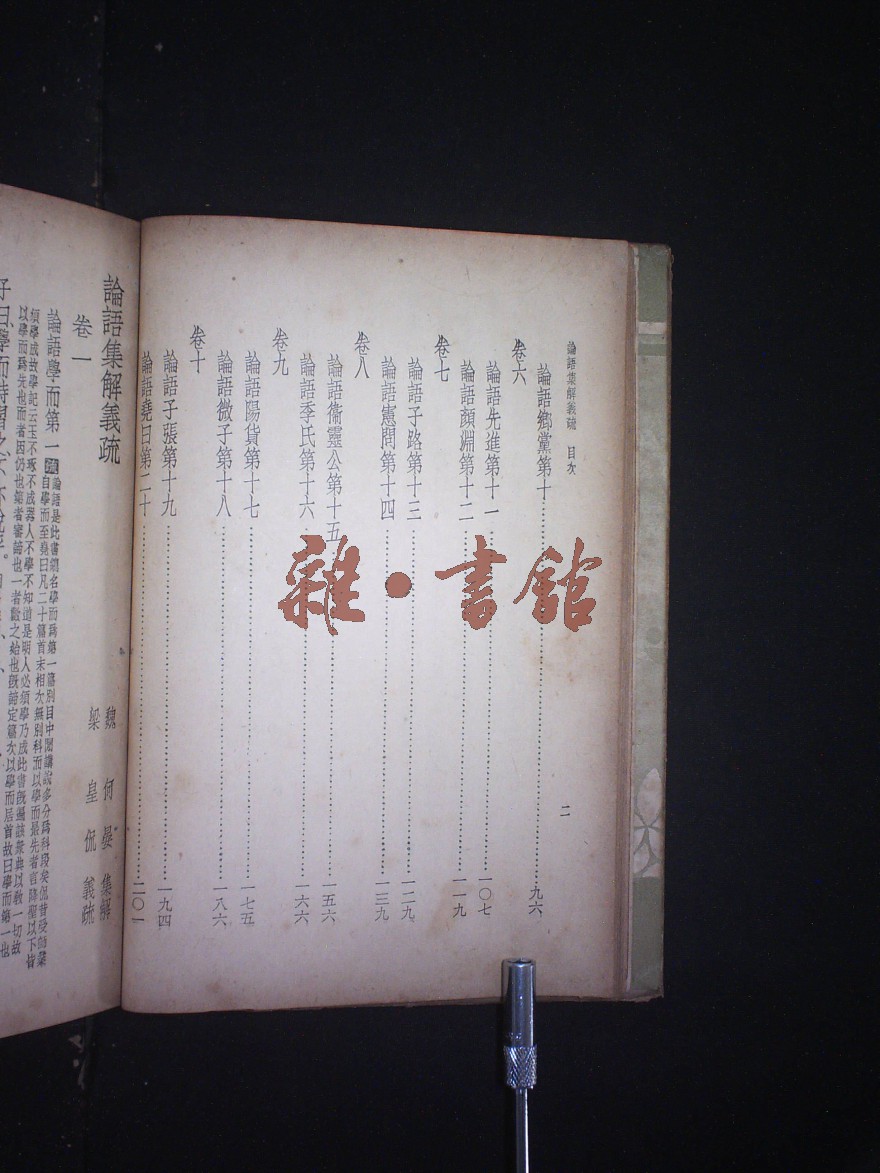 論語集解義疏 目次 二
卷六
論語鄉黨第十 九六
論語先進第十一 一〇七
論語顏淵第十二 一一九
卷七
論語子路第十三 一二九
論語憲問第十四 一三九
卷八
論語衞靈公第十五 一五六
論語季氏第十六 一六六
卷九
論語陽貨第十七 一七五
論語微子第十八 一八六
卷十
論語子張第十九 一九四
論語堯曰第二十 二〇一
雜·書館
論語集解義疏
魏 何晏 集解
梁 皇侃 義疏
卷一
論語學而第一 疏 論語是此書總名學而爲第一篇別目中間講說多分爲科段矣侃昔受師業
自學而至堯曰凡二十篇首末相次無別科而以學而最先者言降聖以下皆
須學成故學記云玉不琢不成器人不學不知道是明人必須學乃成此書既遍該衆典以敎一切故
以學而爲先也而者因仍也第者審諦也一者數之始也既諦定篇次以學而居首故曰學而第一也